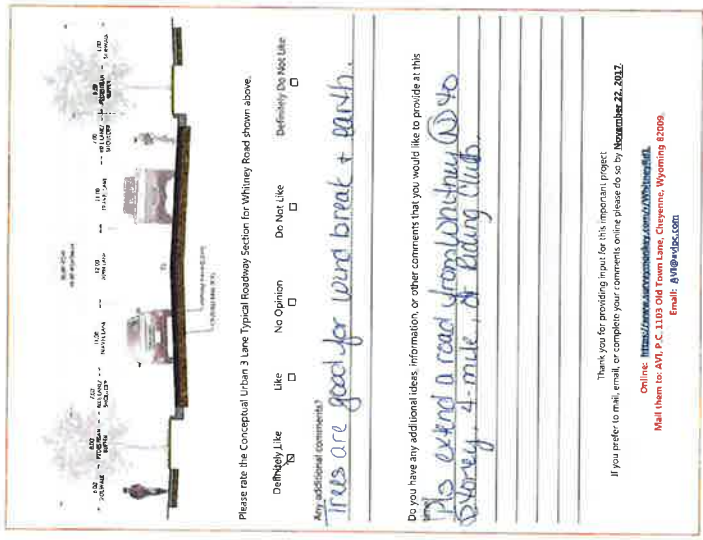 6.00 8.00 7.00 11.00 12.00 11.00 7.00 8.00 6.00
SIDEWALK PEDESTRIAN BUFFER BIKE LANE/ SHOULDER TRAVEL LANE TURN LANE TRAVEL LANE BIKE LANE/ SHOULDER PEDESTRIAN BUFFER SIDEWALK
Please rate the Conceptual Urban 3 Lane Typical Roadway Section for Whitney Road shown above.
Definitely Like Like No Opinion Do Not Like Definitely Do Not Like
Any additional comments?
Trees are good for wind break + earth.
Do you have any additional ideas, information, or other comments that you would like to provide at this
time?
Pls extend a road from Whitney @ to
Storey, 4-mile or Riding Club.
Thank you for providing input for this important project
If you prefer to mail, email, or complete your comments online please do so by November 22, 2017.
Online: https://www.surveymonkey.com/r/WhitneyRd1
Mail them to: AVI, P.C. 1103 Old Town Lane, Cheyenne, Wyoming 82009.
Email: AVI@avipc.com